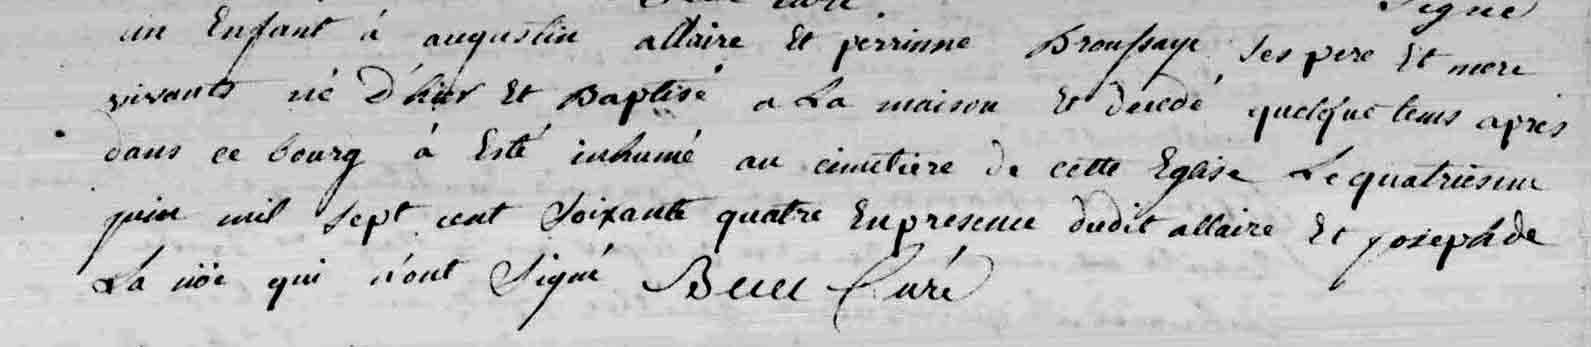 Signé
un Enfant à augustin allaire Et perrinne Broussaye ses pere Et mere
vivants né D'hier Et Baptisé a La maison Et decedé quelque tems après
dans ce bourg à Esté inhumé au cimetiere de cette Eglise Le quatriesme
juin mil sept cent soixante quatre En presence dudit allaire Et joseph de
La nöe qui n'ont Signé Curé